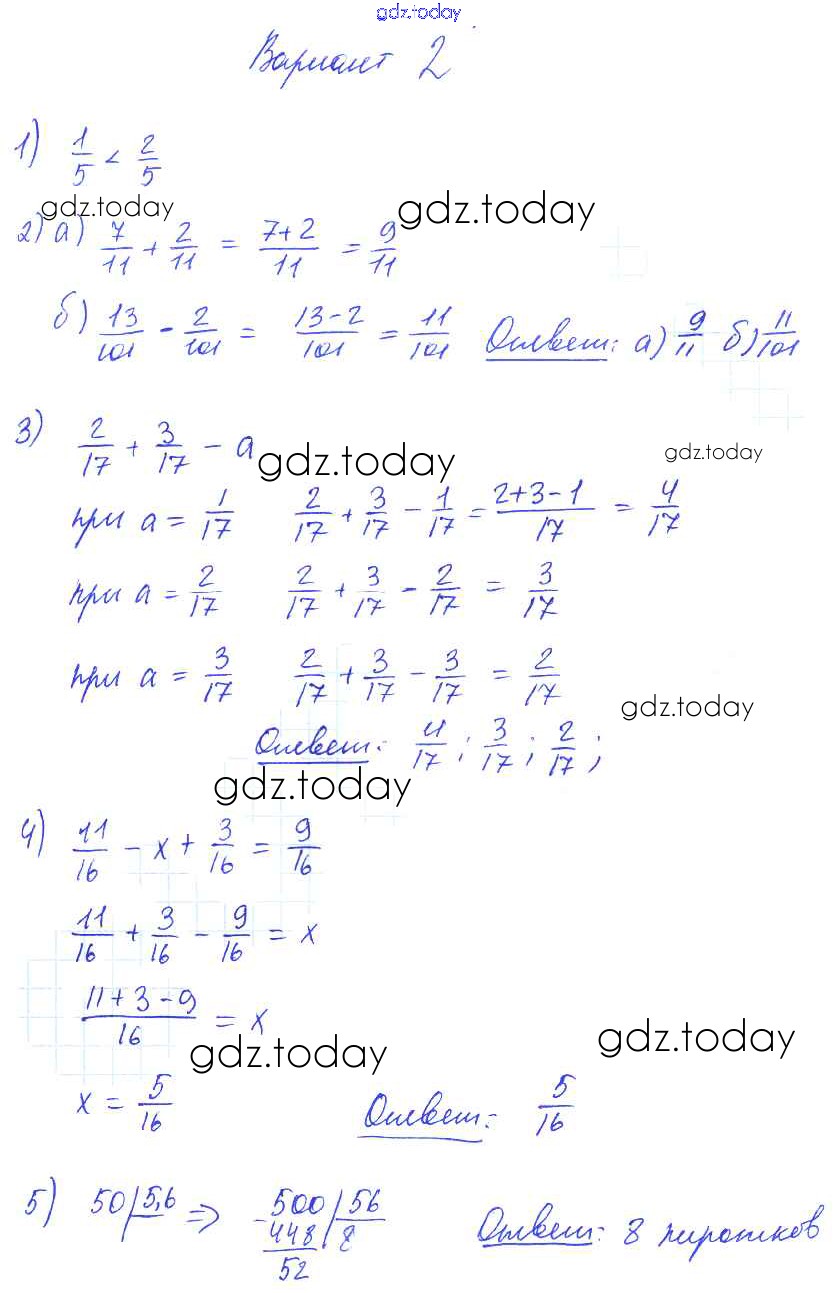 gdz.today
Вариант 2
1) 1/5 < 2/5
gdz.today gdz.today
2) а) 7/11 + 2/11 = (7+2)/11 = 9/11
б) 13/101 - 2/101 = (13-2)/101 = 11/101 Ответ: а) 9/11 б) 11/101
3) 2/17 + 3/17 - a
gdz.today gdz.today
при a = 1/17 2/17 + 3/17 - 1/17 = (2+3-1)/17 = 4/17
при a = 2/17 2/17 + 3/17 - 2/17 = 3/17
при a = 3/17 2/17 + 3/17 - 3/17 = 2/17
gdz.today
Ответ: 4/17; 3/17; 2/17;
gdz.today
4) 11/16 - x + 3/16 = 9/16
11/16 + 3/16 - 9/16 = x
(11+3-9)/16 = x
gdz.today gdz.today
x = 5/16 Ответ: 5/16
5) 50 | 5,6 ⇒ 500 | 56 Ответ: 8 пирожков
- 448 | 8
52